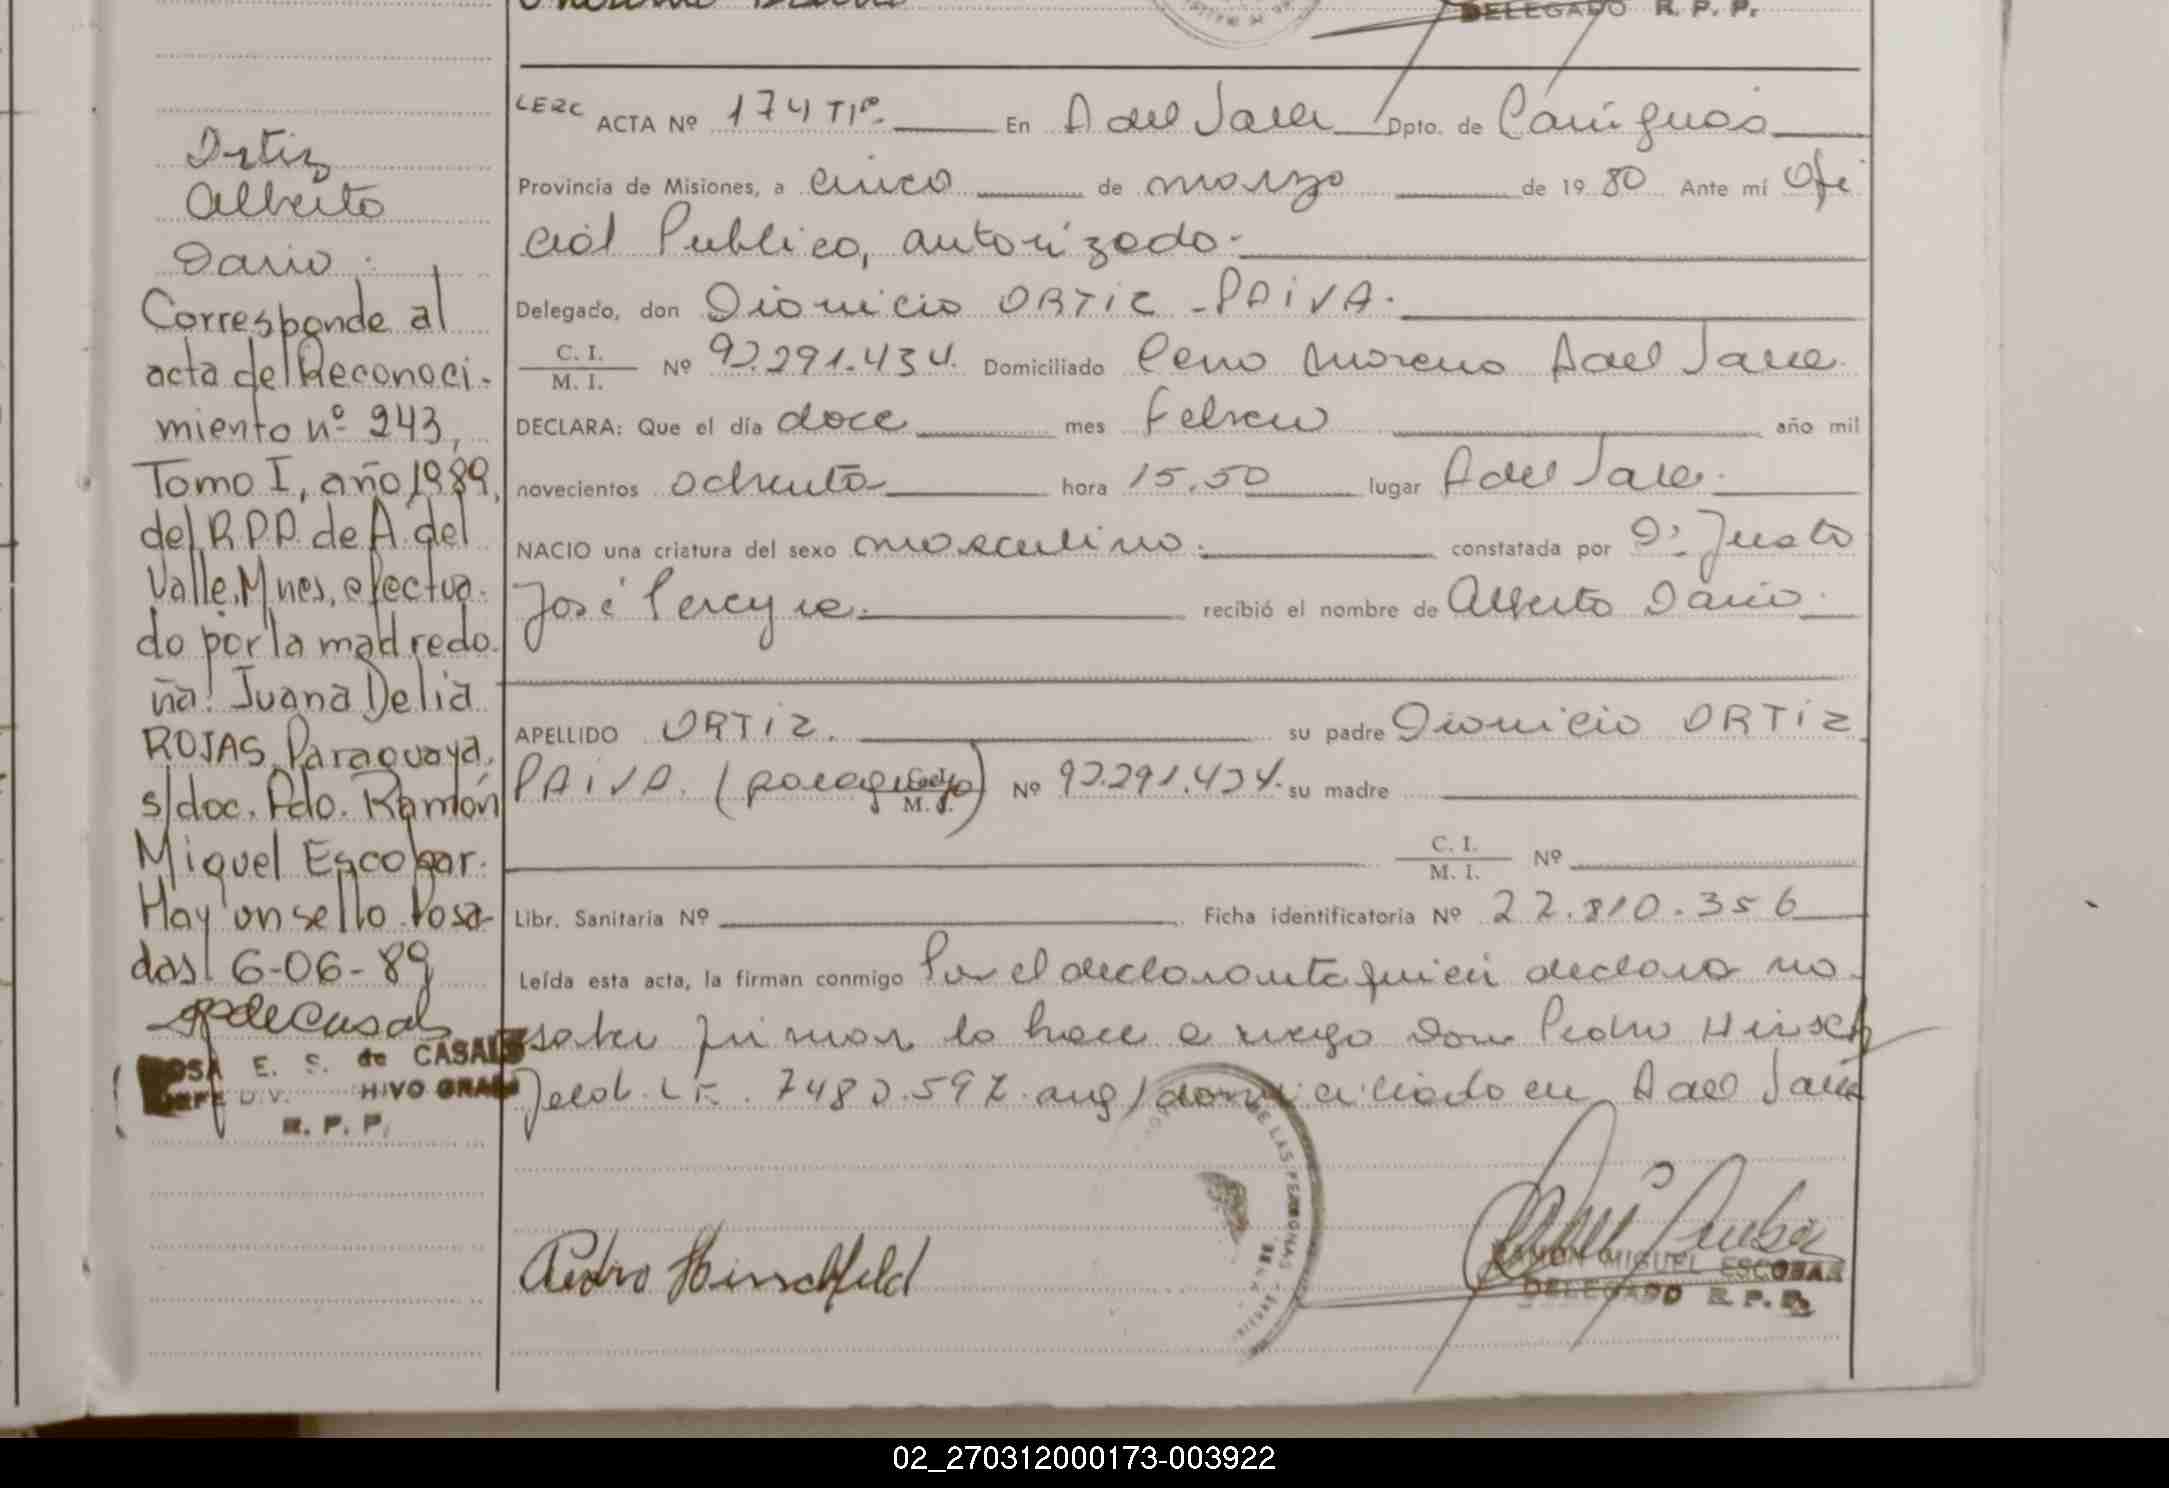 DELEGADO R. P. P.
LERC ACTA Nº 174 TIº. En A del Valle Dpto. de Cainguás
Provincia de Misiones, a cinco de marzo de 1980 Ante mí Ofi
cial Publico, autorizado.
Delegado, don Dionicio ORTIZ - PAIVA.
C. I.
M. I. Nº 92.291.434. Domiciliado Cerro Moreno A del Valle
DECLARA: Que el día doce mes Febrero año mil
novecientos ochenta hora 15.50 lugar A del Valle.
NACIO una criatura del sexo masculino. constatada por Dr. Justo
José Pereyra. recibió el nombre de Alberto Dario.
APELLIDO ORTIZ. su padre Dionicio ORTIZ
PAIVA. (paraguayo) Nº 92.291.434. su madre
C. I.
M. I. Nº
Libr. Sanitaria Nº Ficha identificatoria Nº 22.810.356
Leída esta acta, la firman conmigo Por el declarante quien declara no
saber firmar lo hace a ruego Don Pedro Hirsch
feld. L E. 7480.597. arg/domiciliado en A del Valle
Pedro Hirschfeld
RAMON MIGUEL ESCOBAR
DELEGADO R. P. P.
Ortiz
Alberto
Dario.
Corresponde al
acta de Reconoci-
miento nº 243,
Tomo I, año 1989,
del R.P.P. de A. del
Valle, Mnes, efectua-
do por la madre do-
ña: Juana Delia
ROJAS, Paraguaya,
s/doc. Fdo. Ramón
Miguel Escobar.
Hay un sello. Posa-
das 6-06-89
ROSA E. S. de CASALS
JEFE DIV. HIVO GRAL
R. P. P.
02_270312000173-003922